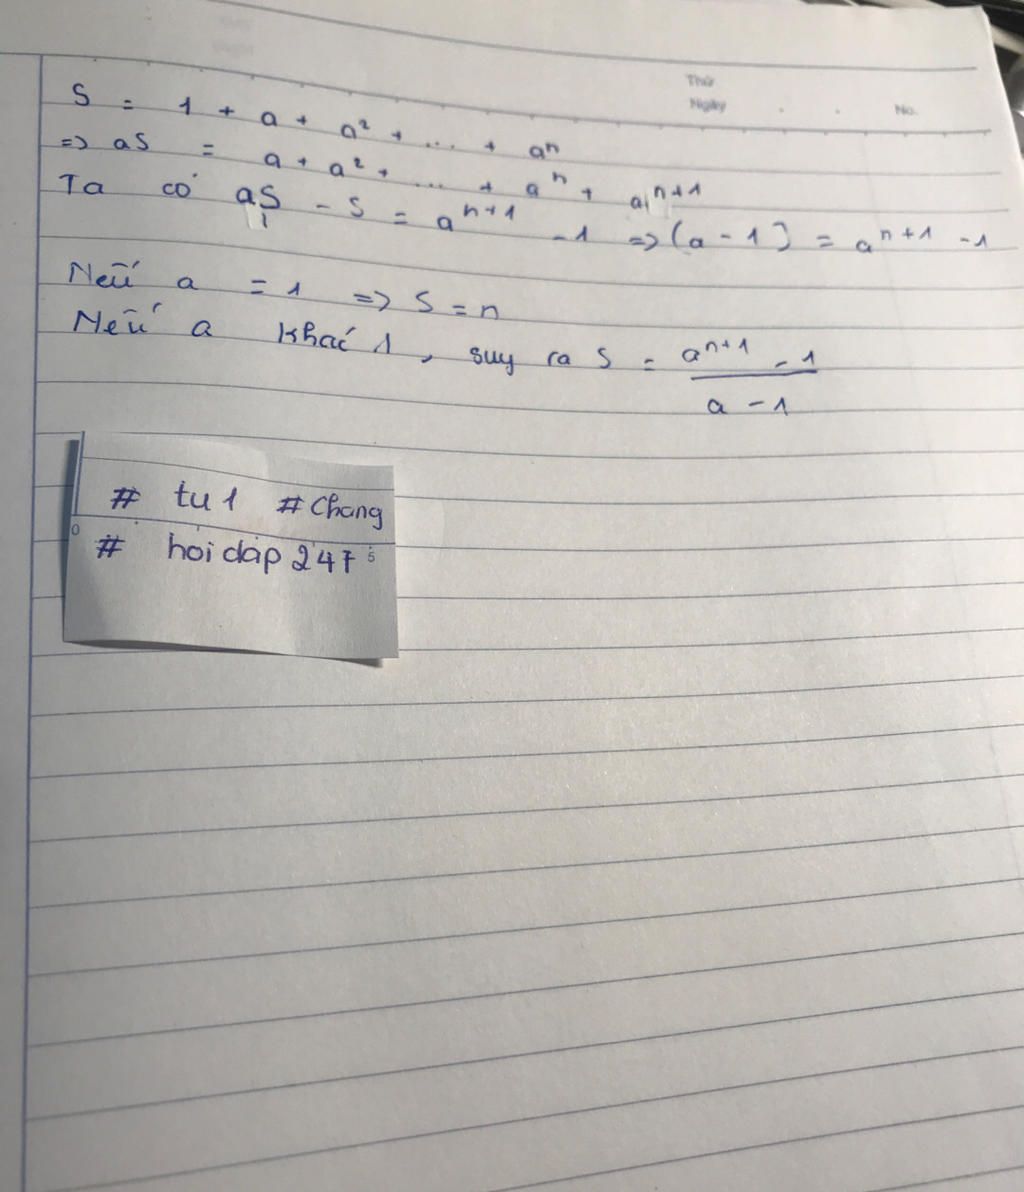 Thứ
Ngày No.
S = 1 + a + a² + ... + aⁿ
=> aS = a + a² + ... + aⁿ + aⁿ⁺¹
Ta có aS - S = aⁿ⁺¹ - 1 => (a - 1) = aⁿ⁺¹ - 1
Nếu a = 1 => S = n
Nếu a khác 1, suy ra S = \frac{aⁿ⁺¹ - 1}{a - 1}
# tu1 #Chang
# hoidap247
0 5